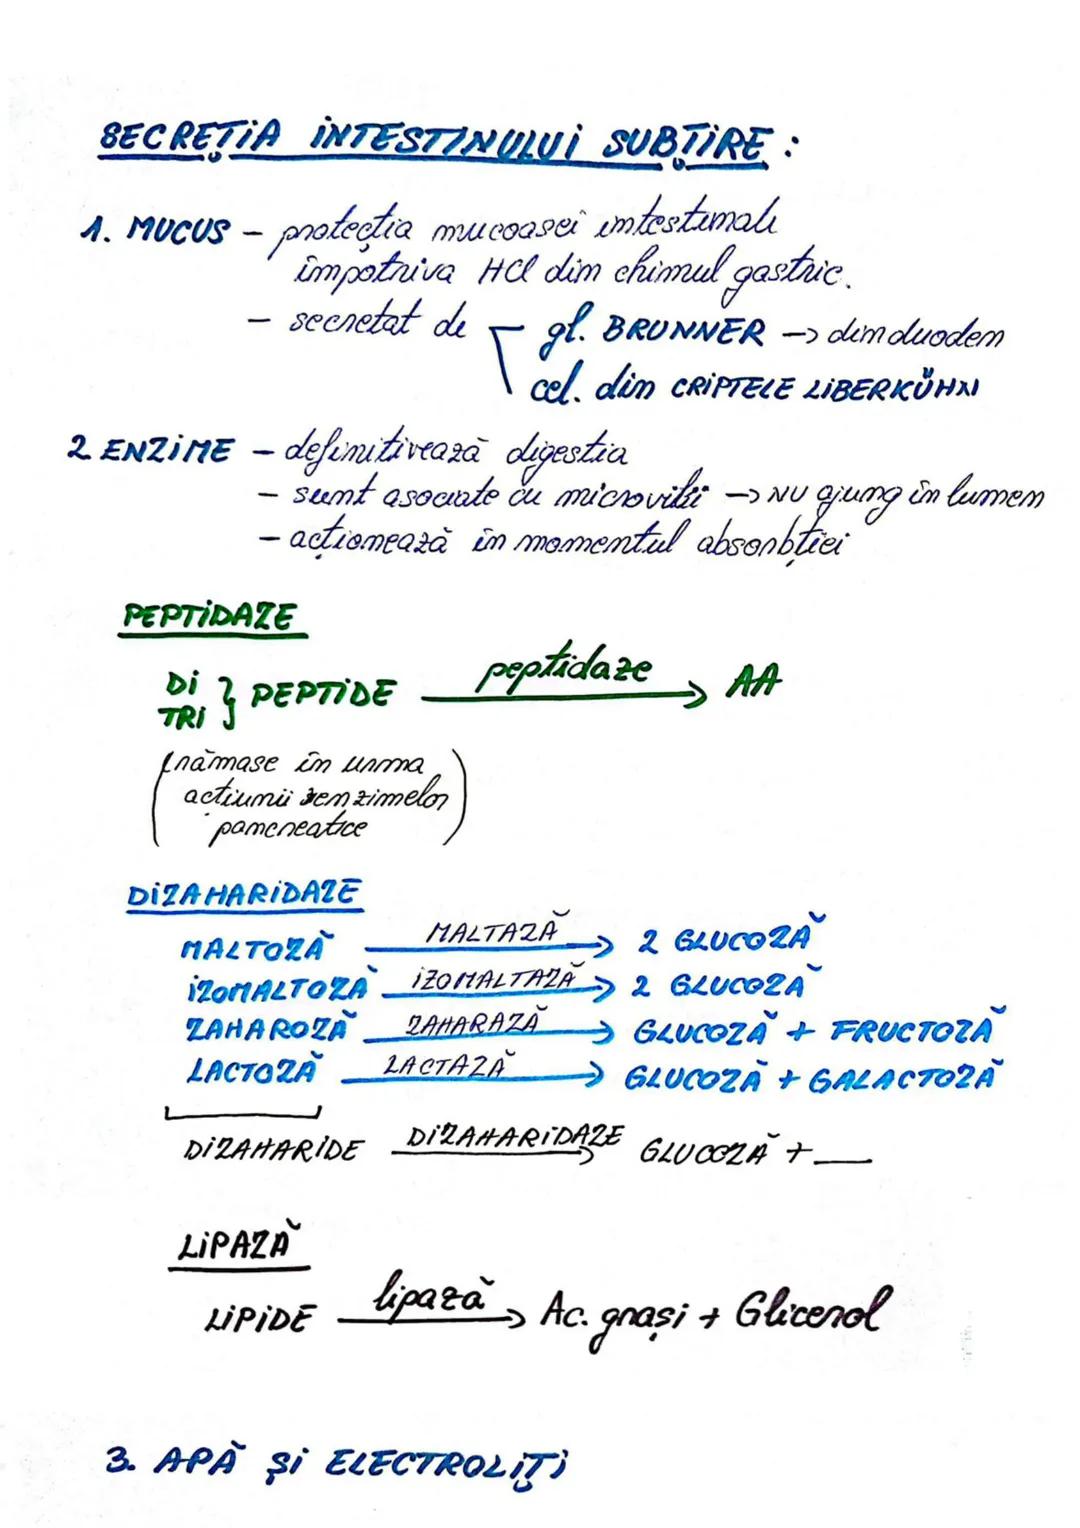 SECREȚIA INTESTINULUI SUBȚIRE :
1. MUCUS - protecția mucoasei intestinale
împotriva HCl din chimul gastric.
- secretat de gl. BRUNNER -> din duoden
cel. din CRIPTELE LIBERKÜHN
2 ENZIME - definitivează digestia
- sunt asociate cu microvilii -> NU ajung în lumen
- acționează în momentul absorbției
PEPTIDAZE
DI
TRI } PEPTIDE peptidaze -> AA
(rămase în urma
acțiunii enzimelor
pancreatice)
DIZAHARIDAZE
MALTOZĂ MALTAZĂ -> 2 GLUCOZĂ
IZOMALTOZĂ IZOMALTAZĂ -> 2 GLUCOZĂ
ZAHAROZĂ ZAHARAZĂ -> GLUCOZĂ + FRUCTOZĂ
LACTOZĂ LACTAZĂ -> GLUCOZĂ + GALACTOZĂ
DIZAHARIDE DIZAHARIDAZE -> GLUCOZĂ + __
LIPAZĂ
LIPIDE lipază -> Ac. grași + Glicerol
3. APĂ ȘI ELECTROLIȚI